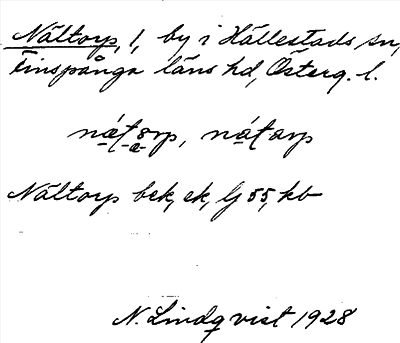 Nältorp, 1, by i Hällestads sn,
Finspånga läns hd, Österg. l.
Nältorp bek, ek, Gj 55, kb
N. Lindqvist 1928